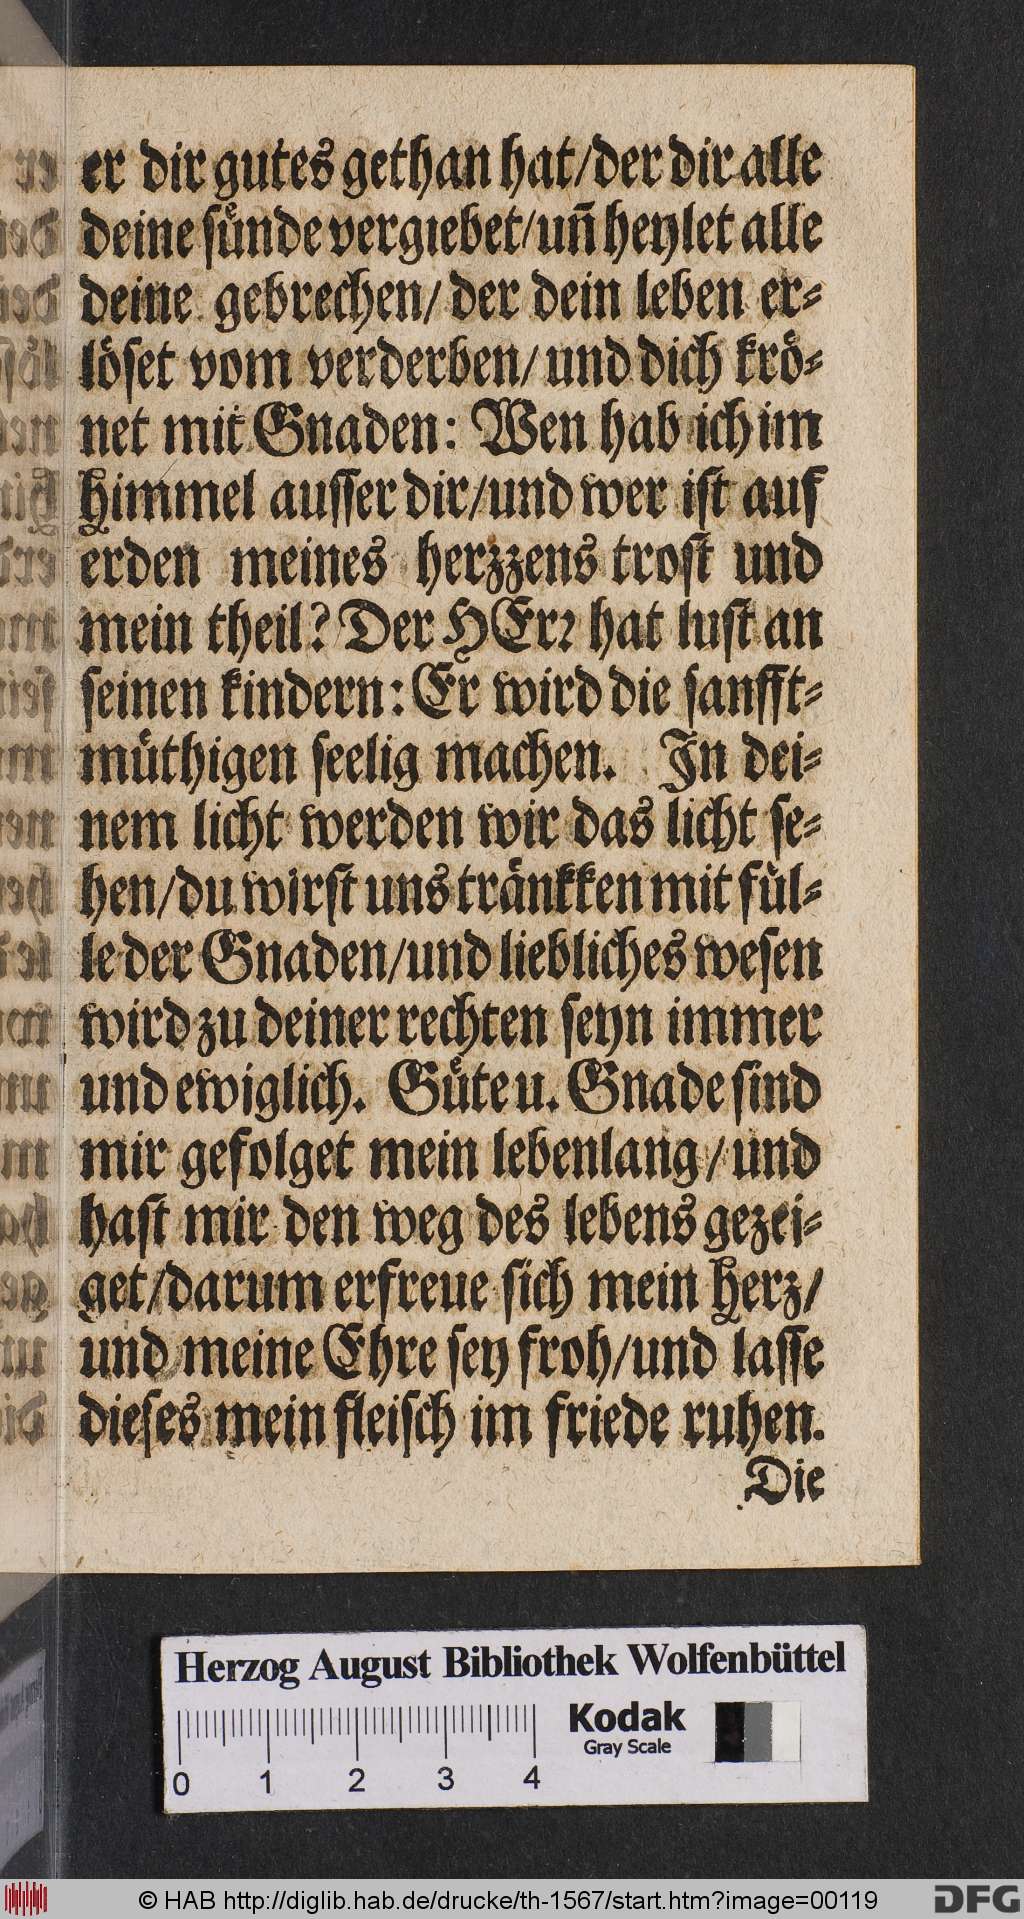 er dir gutes gethan hat/der dir alle
deine suͤnde vergiebet/uñ heylet alle
deine gebrechen/ der dein leben er⸗
löset vom verderben/ und dich krö⸗
net mit Gnaden: Wen hab ich im
himmel ausser dir/und wer ist auf
erden meines herzzens trost und
mein theil? Der HErꝛ hat lust an
seinen kindern: Er wird die sanfft⸗
müthigen seelig machen. In dei⸗
nem licht werden wir das licht se⸗
hen/du wirst uns tränkken mit fül⸗
le der Gnaden/und liebliches wesen
wird zu deiner rechten seyn immer
und ewiglich. Guͤte u. Gnade sind
mir gefolget mein lebenlang/und
hast mir den weg des lebens gezei⸗
get/darum erfreue sich mein herz/
und meine Ehre sey froh/und lasse
dieses mein fleisch im friede ruhen.
Die
Herzog August Bibliothek Wolfenbüttel
Kodak
Gray Scale
0 1 2 3 4
© HAB http://diglib.hab.de/drucke/th-1567/start.htm?image=00119
DFG